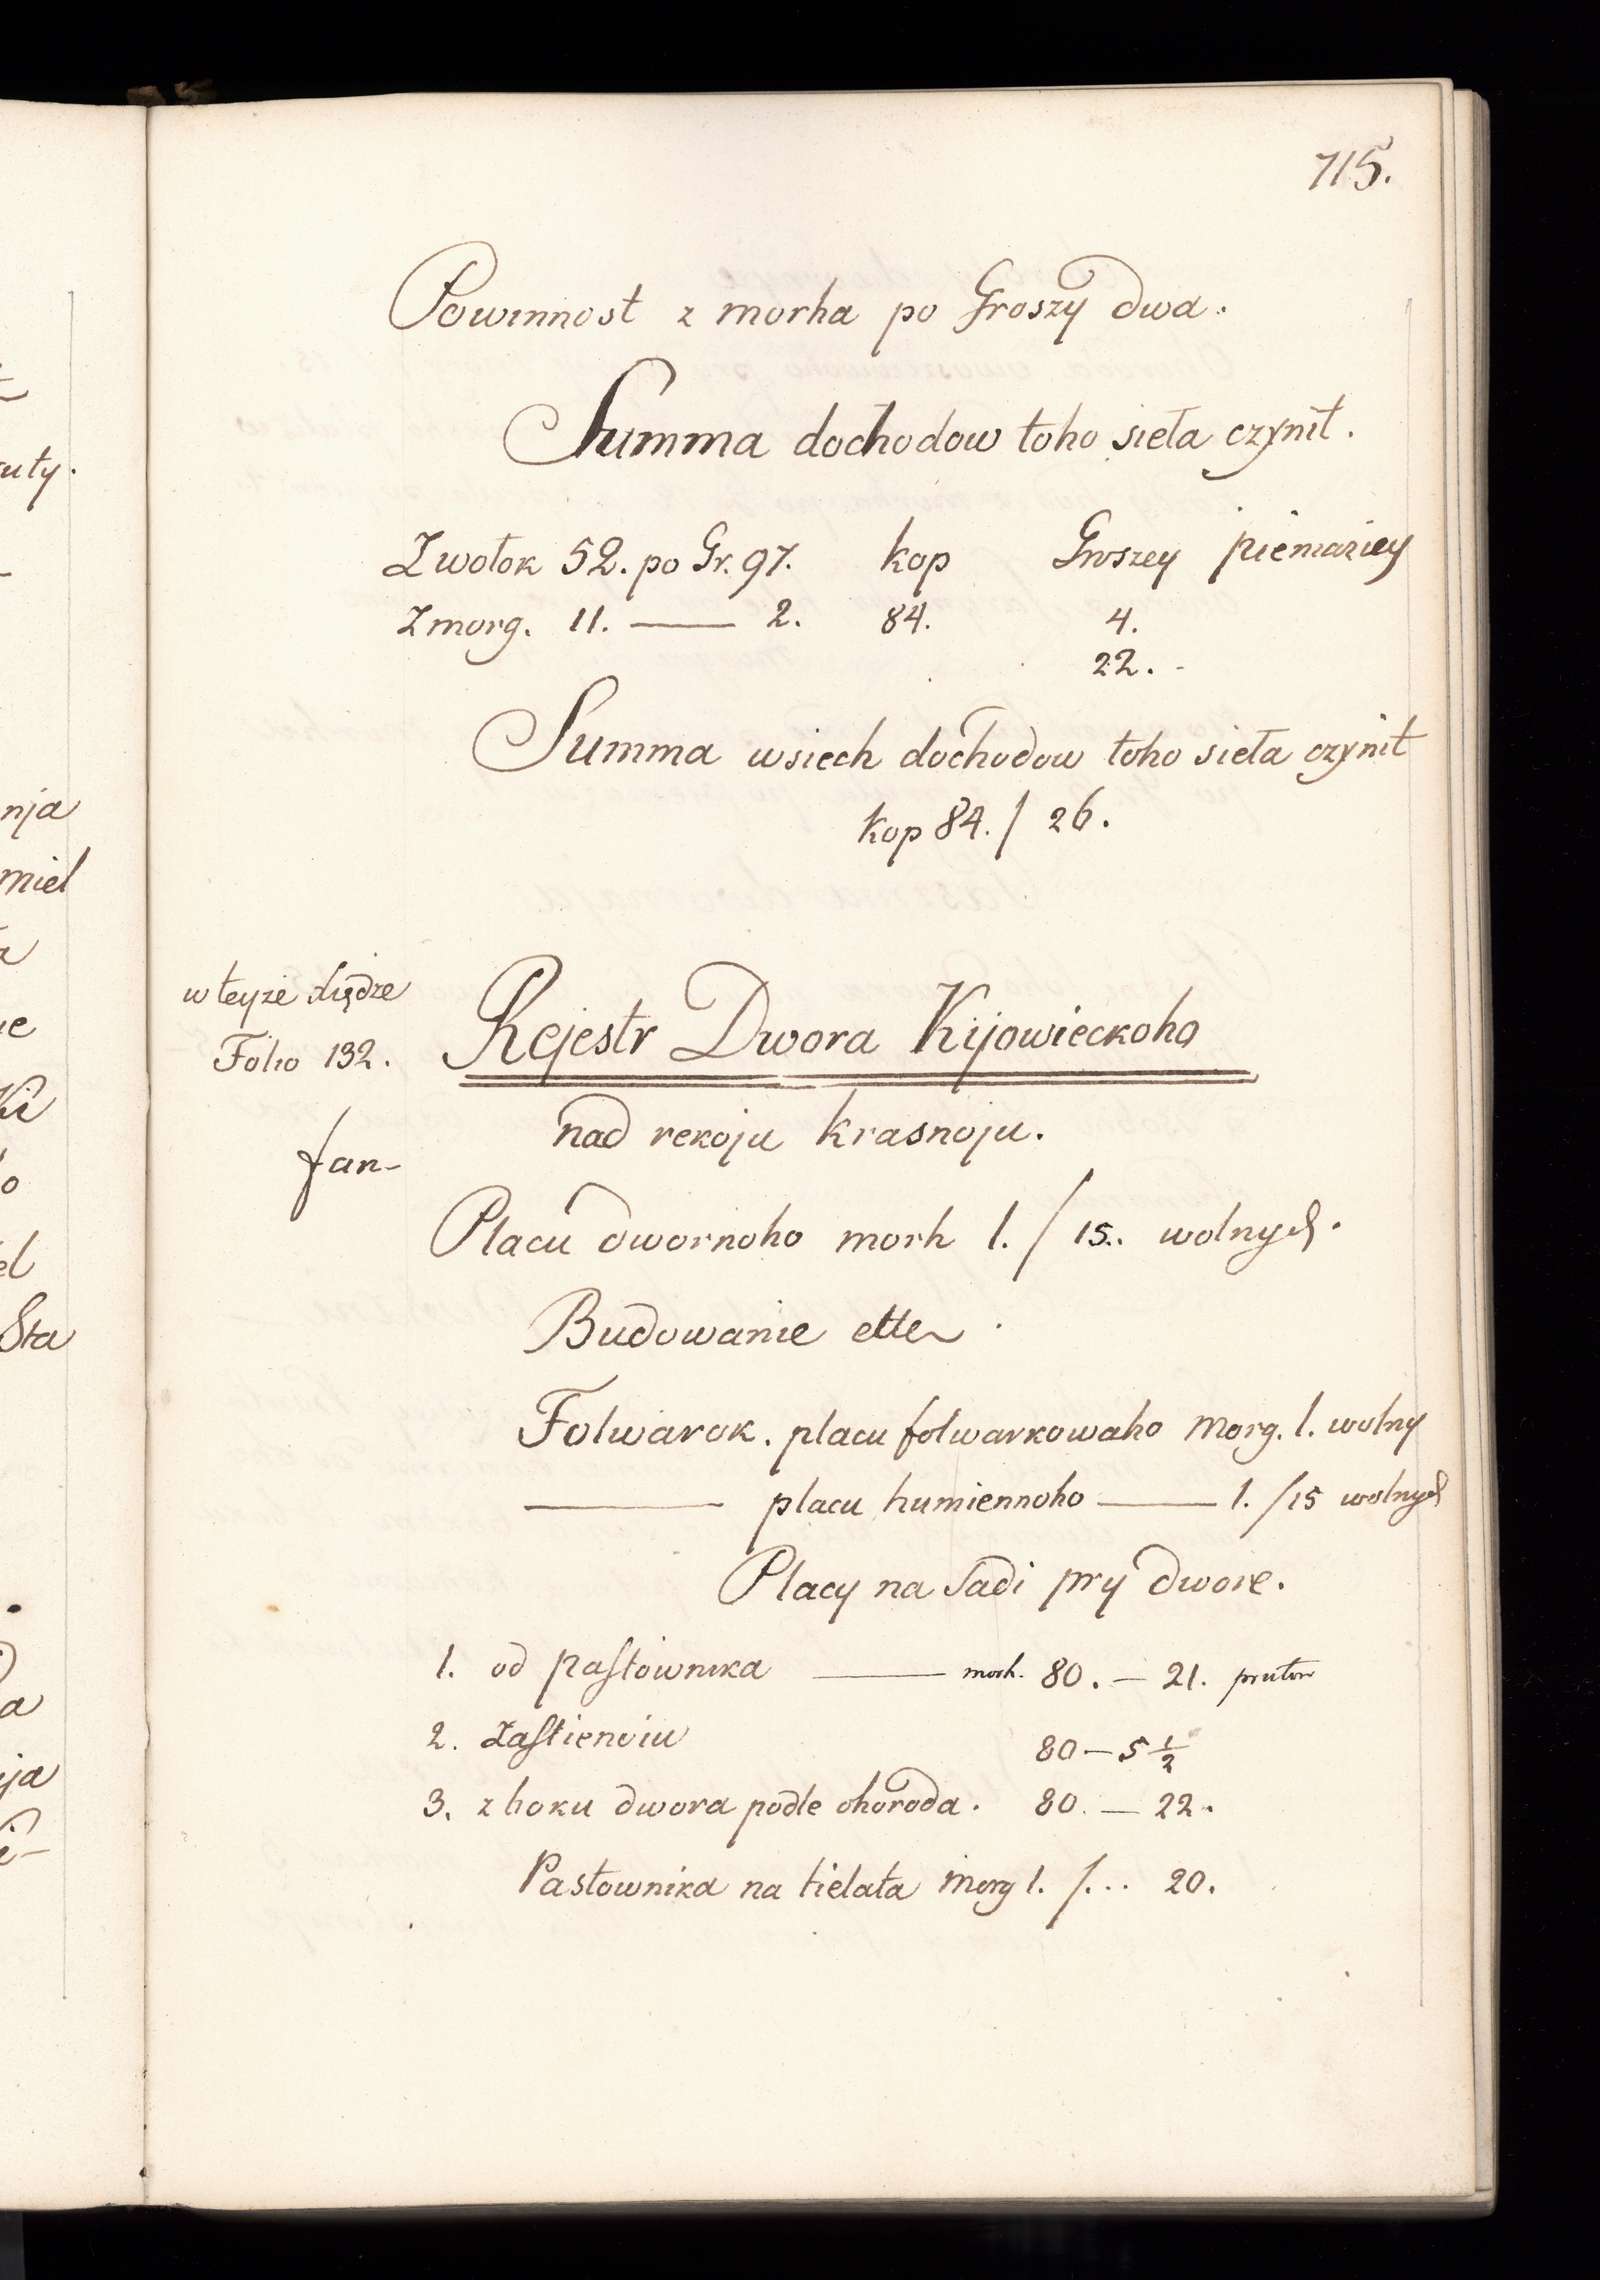 715.
Powinnost z morha po Groszy dwa.
Summa dochodow toho sieła czynit.
Z wołok 52. po Gr. 97. kop Groszey pieniaziey
Z morg. 11. — 2. 84. 4.
22. -
Summa wsiech dochodow toho sieła czynit
kop 84. / 26.
w teyże xiędze
Folio 132.
Rejestr Dwora Kijowieckoho
nad rekoju krasnoju.
fan-
Placu dwornoho morh 1. / 15.. wolnych.
Budowanie ettc
Folwarok. placu folwarkowaho morg. 1. wolny
— placu humiennoho — 1. / 15 wolnych
Placy na Sadi pry dwore.
1. od pastownika — morh. 80. — 21. prutow
2. Zastieniu 80 — 5 1/2
3. z boku dwora podle ohoroda. 80. — 22.
Pastownika na tielata morg 1. /... 20.